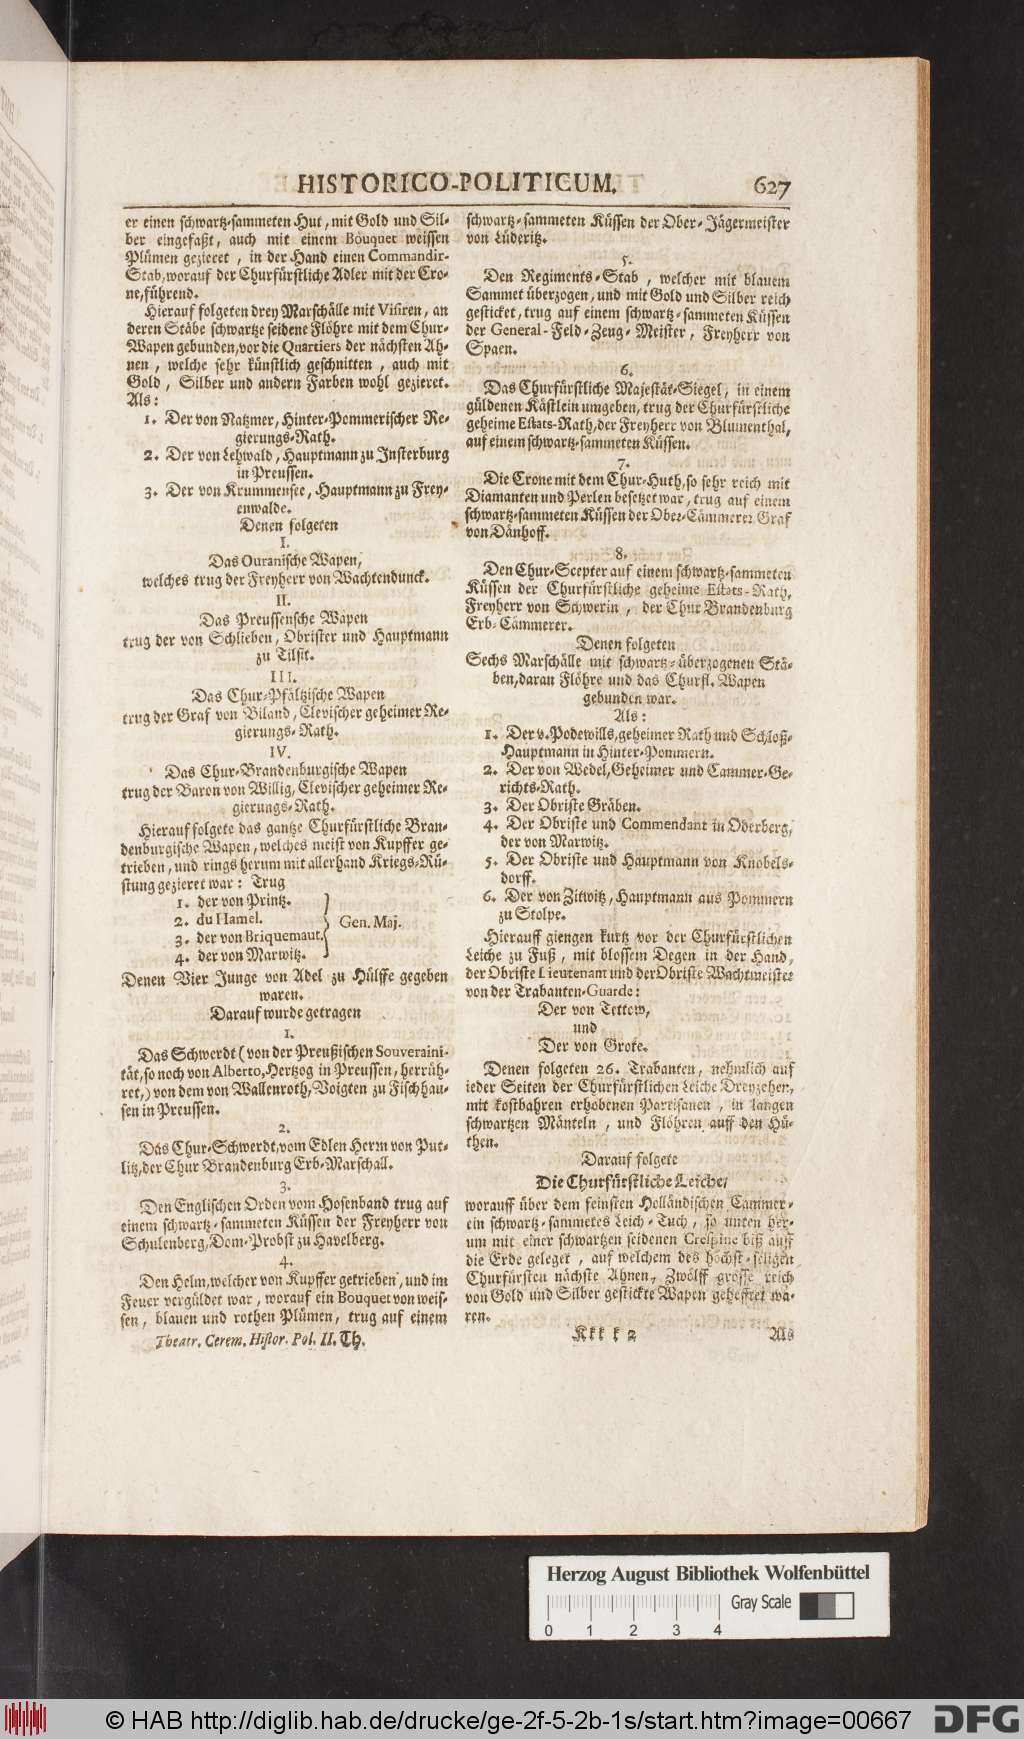 HISTORICO-POLITICUM. 627
er einen schwartz-sammeten Hut, mit Gold und Sil-
ber eingefaßt, auch mit einem Bouquet weissen
Plümen gezieret, in der Hand einen Commandir-
Stab, worauf der Churfürstliche Adler mit der Cro-
ne, führend.
Hierauf folgeten drey Marschälle mit Visiren, an
deren Stäbe schwartze seidene Flöhre mit dem Chur-
Wapen gebunden, vor die Quartiers der nächsten Ah-
nen, welche sehr künstlich geschnitten, auch mit
Gold, Silber und andern Farben wohl gezieret.
Als:
1. Der von Natzmer, Hinter-Pommerischer Re-
gierungs-Rath.
2. Der von Lehwald, Hauptmann zu Insterburg
in Preussen.
3. Der von Krummensee, Hauptmann zu Frey-
enwalde.
Denen folgeten
I.
Das Ouranische Wapen,
welches trug der Freyherr von Wachtendunck.
II.
Das Preussensche Wapen
trug der von Schlieben, Obrister und Hauptmann
zu Tilsit.
III.
Das Chur-Pfältzische Wapen
trug der Graf von Biland, Clevischer geheimer Re-
gierungs-Rath.
IV.
Das Chur-Brandenburgische Wapen
trug der Baron von Willig, Clevischer geheimer Re-
gierungs-Rath.
Hierauf folgete das gantze Churfürstliche Bran-
denburgische Wapen, welches meist von Kupffer ge-
trieben, und rings herum mit allerhand Kriegs-Rü-
stung gezieret war: Trug
1. der von Printz.
2. du Hamel.
3. der von Briquemaut.
4. der von Marwitz.
Gen. Maj.
Denen Vier Junge von Adel zu Hülffe gegeben
waren.
Darauf wurde getragen
1.
Das Schwerdt (von der Preußischen Souveraini-
tät, so noch von Alberto, Hertzog in Preussen, herrüh-
ret,) von dem von Wallenroth, Voigten zu Fischhau-
sen in Preussen.
2.
Das Chur-Schwerdt, vom Edlen Herrn von Put-
litz, der Chur Brandenburg Erb-Marschall.
3.
Den Englischen Orden vom Hosenband trug auf
einem schwartz-sammeten Küssen der Freyherr von
Schulenberg, Dom-Probst zu Havelberg.
4.
Den Helm, welcher von Kupffer getrieben, und im
Feuer vergüldet war, worauf ein Bouquet von weis-
sen, blauen und rothen Plümen, trug auf einem
Theatr. Cerem. Histor. Pol. II. Th.
schwartz-sammeten Küssen der Ober-Jägermeister
von Lüderitz.
5.
Den Regiments-Stab, welcher mit blauem
Sammet überzogen, und mit Gold und Silber reich
gesticket, trug auf einem schwartz-sammeten Küssen
der General-Feld-Zeug-Meister, Freyherr von
Spaen.
6.
Das Churfürstliche Majestät-Siegel, in einem
güldenen Kästlein umgeben, trug der Churfürstliche
geheime Estats-Rath, der Freyherr von Blumenthal,
auf einem schwartz-sammeten Küssen.
7.
Die Crone mit dem Chur-Huth, so sehr reich mit
Diamanten und Perlen besetzet war, trug auf einem
schwartz-sammeten Küssen der Ober-Cämmerer Graf
von Dänhoff.
8.
Den Chur-Scepter auf einem schwartz-sammeten
Küssen der Churfürstliche geheime Estats-Rath,
Freyherr von Schwerin, der Chur Brandenburg
Erb-Cämmerer.
Denen folgeten
Sechs Marschälle mit schwartz-überzogenen Stä-
ben, daran Flöhre und das Churfl. Wapen
gebunden war.
Als:
1. Der v. Podewills, geheimer Rath und Schloß-
Hauptmann in Hinter-Pommern.
2. Der von Wedel, Geheimer und Cammer-Ge-
richts-Rath.
3. Der Obriste Gräben.
4. Der Obriste und Commendant in Oderberg,
der von Marwitz.
5. Der Obriste und Hauptmann von Knobels-
dorff.
6. Der von Zitwitz, Hauptmann aus Pommern
zu Stolpe.
Hierauff giengen kurtz vor der Churfürstlichen
Leiche zu Fuß, mit blossem Degen in der Hand,
der Obriste Lieutenant und der Obriste Wachtmeister
von der Trabanten-Guarde:
Der von Tettow,
und
Der von Grote.
Denen folgeten 26. Trabanten, nehmlich auf
ieder Seiten der Churfürstlichen Leiche Dreyzehen,
mit kostbahren erhobenen Partisanen, in langen
schwartzen Mänteln, und Flöhren auff den Hü-
then.
Darauf folgete
Die Churfürstliche Leiche,
worauff über dem feinsten Holländischen Cammer-
ein schwartz-sammetes Leich-Tuch, so unten her-
um mit einer schwartzen seidenen Crespine biß auff
die Erde geleget, auf welchem des höchst-seligen
Churfürsten nächste Ahnen, Zwölff grosse reich
von Gold und Silber gestickte Wapen gehefftet wa-
ren.
Kkk k 2 Als
Herzog August Bibliothek Wolfenbüttel
0 1 2 3 4 Gray Scale
© HAB http://diglib.hab.de/drucke/ge-2f-5-2b-1s/start.htm?image=00667 DFG